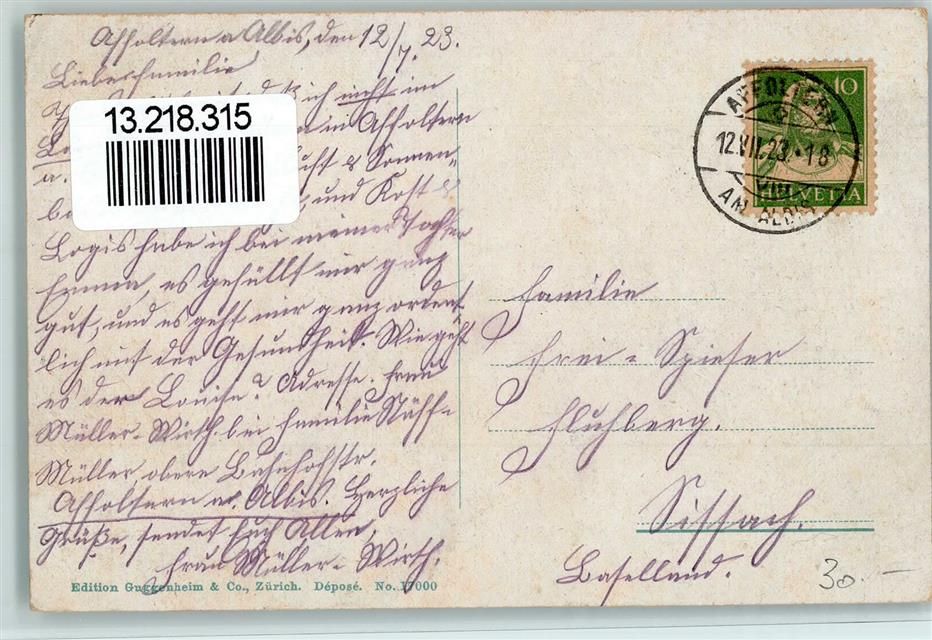 Affoltern a Albis, den 12/7. 23.
Liebe Familie
ich nicht im
in Affoltern
a. & Sonnen-
und Kost &
Logis habe ich bei meiner Tochter
Emma, es gefällt mir ganz
gut, und es geht mir ganz ordent-
lich mit der Gesundheit. Wie geht
es der Louise? Adresse. Frau
Müller-Wirth bei Familie Näff-
Müller, obere Bahnhofstr.
Affoltern a. Albis. Herzliche
Grüße, sendet Euch Allen,
Frau Müller-Wirth.
Edition Guggenheim & Co., Zürich. Déposé. No. 17000
13.218.315
AFFOLTERN
12.VII.23.-18
VIII
AM ALBIS
10
HELVETIA
Familie
Frei-Spieser
Fluhberg.
Sissach.
Baselland.
30.-